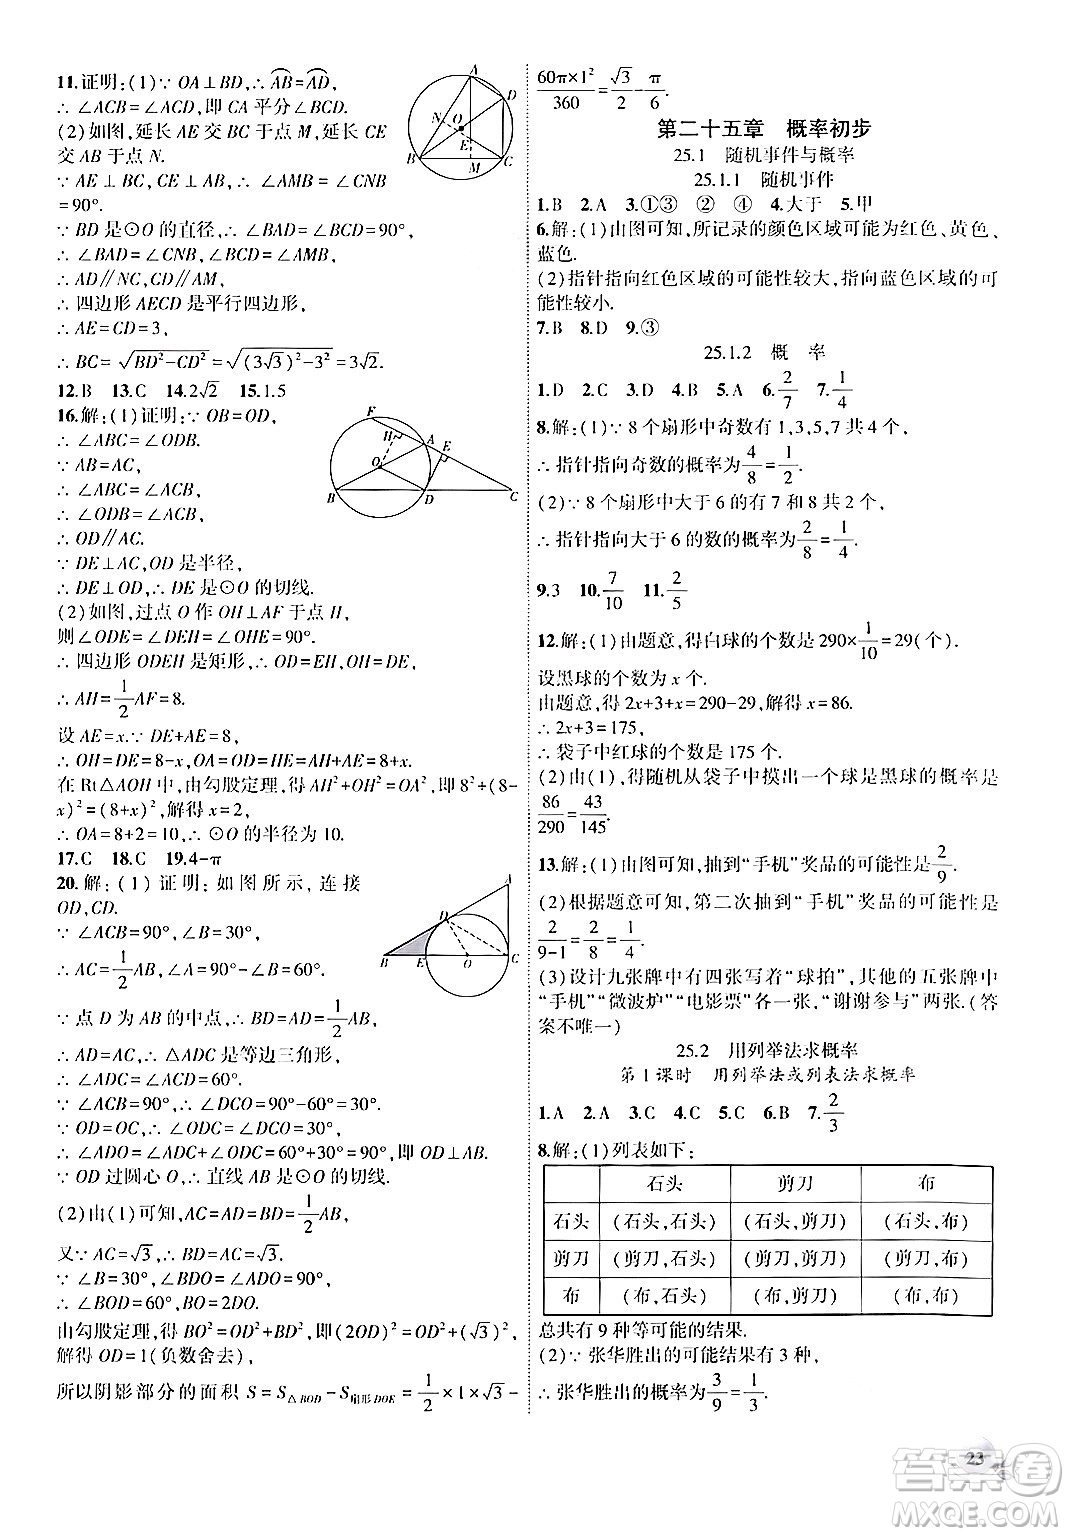 11.证明:(1)∵ OA⊥BD,∴ AB=AD,
∴ ∠ACB=∠ACD,即 CA 平分∠BCD.
(2)如图,延长 AE 交 BC 于点 M,延长 CE
交 AB 于点 N.
∵ AE⊥BC,CE⊥AB,∴ ∠AMB=∠CNB
=90°.
∵ BD 是⊙O 的直径,∴ ∠BAD=∠BCD=90°,
∴ ∠BAD=∠CNB,∠BCD=∠AMB,
∴ AD∥NC,CD∥AM,
∴ 四边形 AECD 是平行四边形,
∴ AE=CD=3,
∴ BC=√(BD²-CD²)=√((3√3)²-3²)=3√2.
12.B 13.C 14.2√2 15.1.5
16.解:(1)证明:∵ OB=OD,
∴ ∠ABC=∠ODB.
∵ AB=AC,
∴ ∠ABC=∠ACB,
∴ ∠ODB=∠ACB,
∴ OD∥AC.
∵ DE⊥AC,OD 是半径,
∴ DE⊥OD,∴ DE 是⊙O 的切线.
(2)如图,过点 O 作 OH⊥AF 于点 H,
则∠ODE=∠DEH=∠OHE=90°.
∴ 四边形 ODEH 是矩形,∴ OD=EH,OH=DE,
∴ AH=1/2AF=8.
设 AE=x.∵ DE+AE=8,
∴ OH=DE=8-x,OA=OD=HE=AH+AE=8+x.
在 Rt△AOH 中,由勾股定理,得 AH²+OH²=OA²,即 8²+(8-
x)²=(8+x)²,解得 x=2,
∴ OA=8+2=10,∴ ⊙O 的半径为 10.
17.C 18.C 19.4-π
20.解:(1)证明:如图所示,连接
OD,CD.
∵ ∠ACB=90°,∠B=30°,
∴ AC=1/2AB,
∵ 点 D 为 AB 的中点,∴ BD=AD=1/2AB,
∴ AD=AC,∴ △ADC 是等边三角形,
∴ ∠ADC=∠ACD=60°.
∵ ∠ACB=90°,∴ ∠DCO=90°-60°=30°.
∵ OD=OC,∴ ∠ODC=∠DCO=30°,
∴ ∠ADO=∠ADC+∠ODC=60°+30°=90°,即 OD⊥AB.
∵ OD 过圆心 O,∴ 直线 AB 是⊙O 的切线.
(2)由(1)可知,AC=AD=BD=1/2AB,
又∵ AC=√3,∴ BD=AC=√3.
∵ ∠B=30°,∠BDO=∠ADO=90°,
∴ ∠BOD=60°,BO=2DO.
由勾股定理,得 BO²=OD²+BD²,即(2OD)²=OD²+(√3)²,
解得 OD=1(负数舍去),
所以阴影部分的面积 S=S△BOD-S扇形DOE=1/2×1×√3-
A
D
N
O
E
B
M
C
F
H
A
E
O
B
D
C
A
D
B
E
O
C
60π×1²/360=√3/2-π/6.
第二十五章 概率初步
25.1 随机事件与概率
25.1.1 随机事件
1.B 2.A 3.①③ ② ④ 4.大于 5.甲
6.解:(1)由图可知,所记录的颜色区域可能为红色、黄色、
蓝色.
(2)指针指向红色区域的可能性较大,指向蓝色区域的可
能性较小.
7.B 8.D 9.③
25.1.2 概 率
1.D 2.C 3.C 4.B 5.A 6.2/7 7.1/4
8.解:(1)∵ 8 个扇形中奇数有 1,3,5,7 共 4 个,
∴ 指针指向奇数的概率为4/8=1/2.
(2)∵ 8 个扇形中大于 6 的有 7 和 8 共 2 个,
∴ 指针指向大于 6 的数的概率为2/8=1/4.
9.3 10.7/10 11.2/5
12.解:(1)由题意,得白球的个数是 290×1/10=29(个).
设黑球的个数为 x 个.
由题意,得 2x+3+x=290-29,解得 x=86.
∴ 2x+3=175,
∴ 袋子中红球的个数是 175 个.
(2)由(1),得随机从袋子中摸出一个球是黑球的概率是
86/290=43/145.
13.解:(1)由图可知,抽到“手机”奖品的可能性是2/9.
(2)根据题意可知,第二次抽到“手机”奖品的可能性是
2/(9-1)=2/8=1/4.
(3)设计九张牌中有四张写着“球拍”,其他的五张牌中
“手机”“微波炉”“电影票”各一张,“谢谢参与”两张.(答
案不唯一)
25.2 用列举法求概率
第 1 课时 用列举法或列表法求概率
1.A 2.A 3.C 4.C 5.C 6.B 7.2/3
8.解:(1)列表如下:
石头 剪刀 布
石头 (石头,石头) (石头,剪刀) (石头,布)
剪刀 (剪刀,石头) (剪刀,剪刀) (剪刀,布)
布 (布,石头) (布,剪刀) (布,布)
总共有 9 种等可能的结果.
(2)∵ 张华胜出的可能结果有 3 种,
∴ 张华胜出的概率为3/9=1/3.
23
答案圈
MXQE.COM